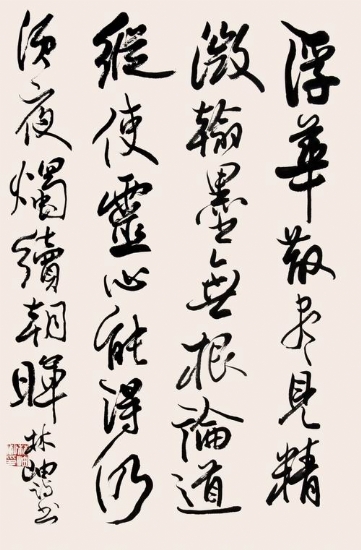 浮華散盡見精
微翰墨無根論道
縱使靈心能得仍
須夜燭續朝暉
林坤詩書